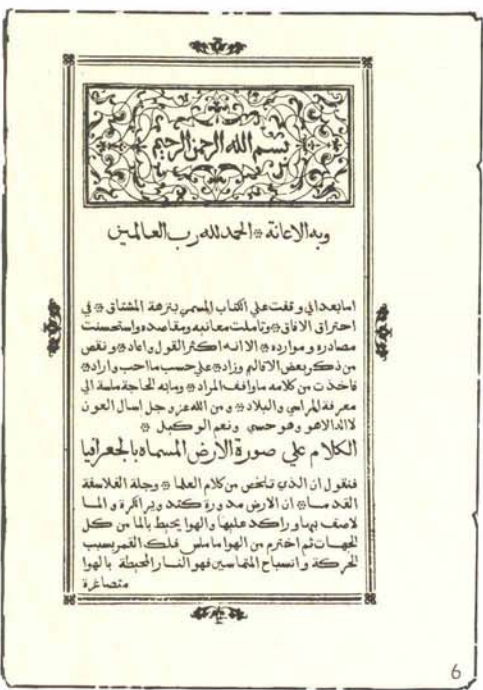 بسم الله الرحمن الرحيم
وبه الاعانة ۞ الحمد لله رب العالمين
اما بعد اني وقفت علي الكتاب المسمي بنزهة المشتاق ۞ في
احتراق الافاق ۞ وتاملت معانيه ومقاصده واستحسنت
مصادره وموارده ۞ الا انه اكثر القول واعاد ۞ ونقص
من ذكر بعض الاقاليم وزاد ۞ علي حسب ما احب واراد ۞
فاخذت من كلامه ما وافق المراد ۞ وما به الحاجة ماسة الي
معرفة المراسي والبلاد ۞ و من الله عز و جل اسال العون
لا اله الا هو وهو حسبي ونعم الوكيل ۞
الكلام علي صورة الارض المسماة بالجعرافيا
فنقول ان الذي تلخص من كلام العلما ۞ وجلة الفلاسفة
القدما ۞ ان الارض مدورة كتدوير الكرة و الما
لاصف بها و راكد عليها والهوا يحيط بالما من كل
الجهات ثم اخترم من الهوا ما ماس فلك القمر بسبب
الحركة و انسباح المتماسين فهو النار المحيطة بالهوا
متصاغرة
6